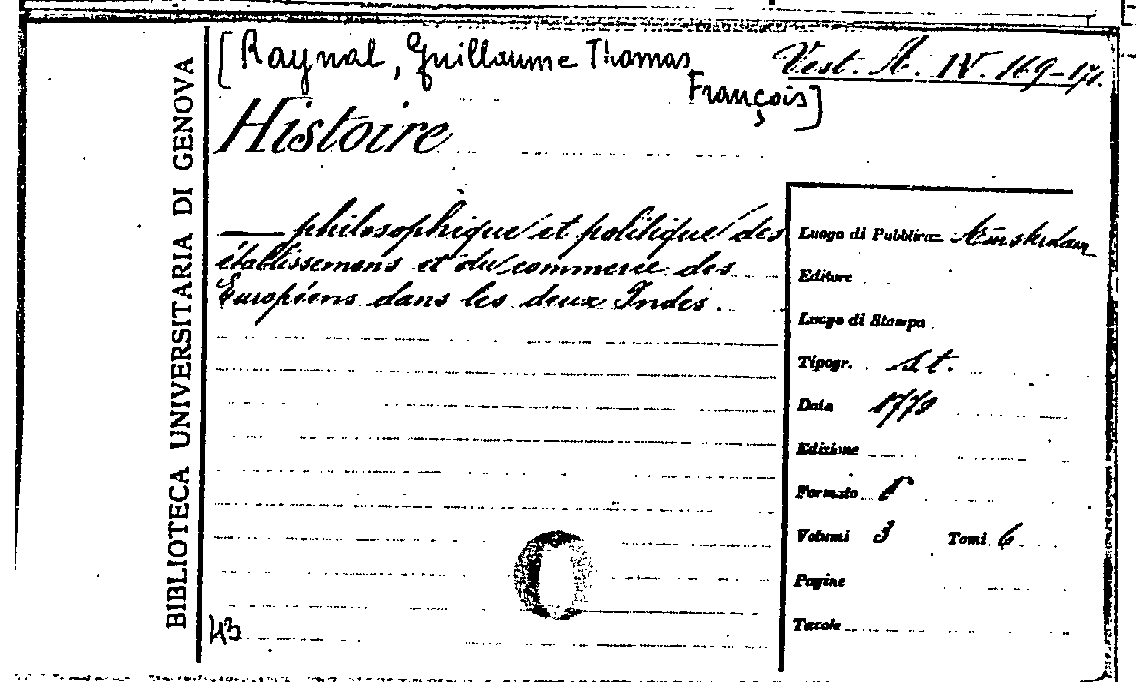 BIBLIOTECA UNIVERSITARIA DI GENOVA
[Raynal, Guillaume Thomas
François]
Vest. A. IV. 169-171.
Histoire
— philosophique et politique des
établissemens et du commerce des
Européens dans les deux Indes.
Luogo di Pubblicaz. Amsterdam
Editore
Luogo di Stampa
Tipogr. s. t.
Data
Edizione
Formato 8
Volumi 3 Tomi 6
Pagine
Tavole
43